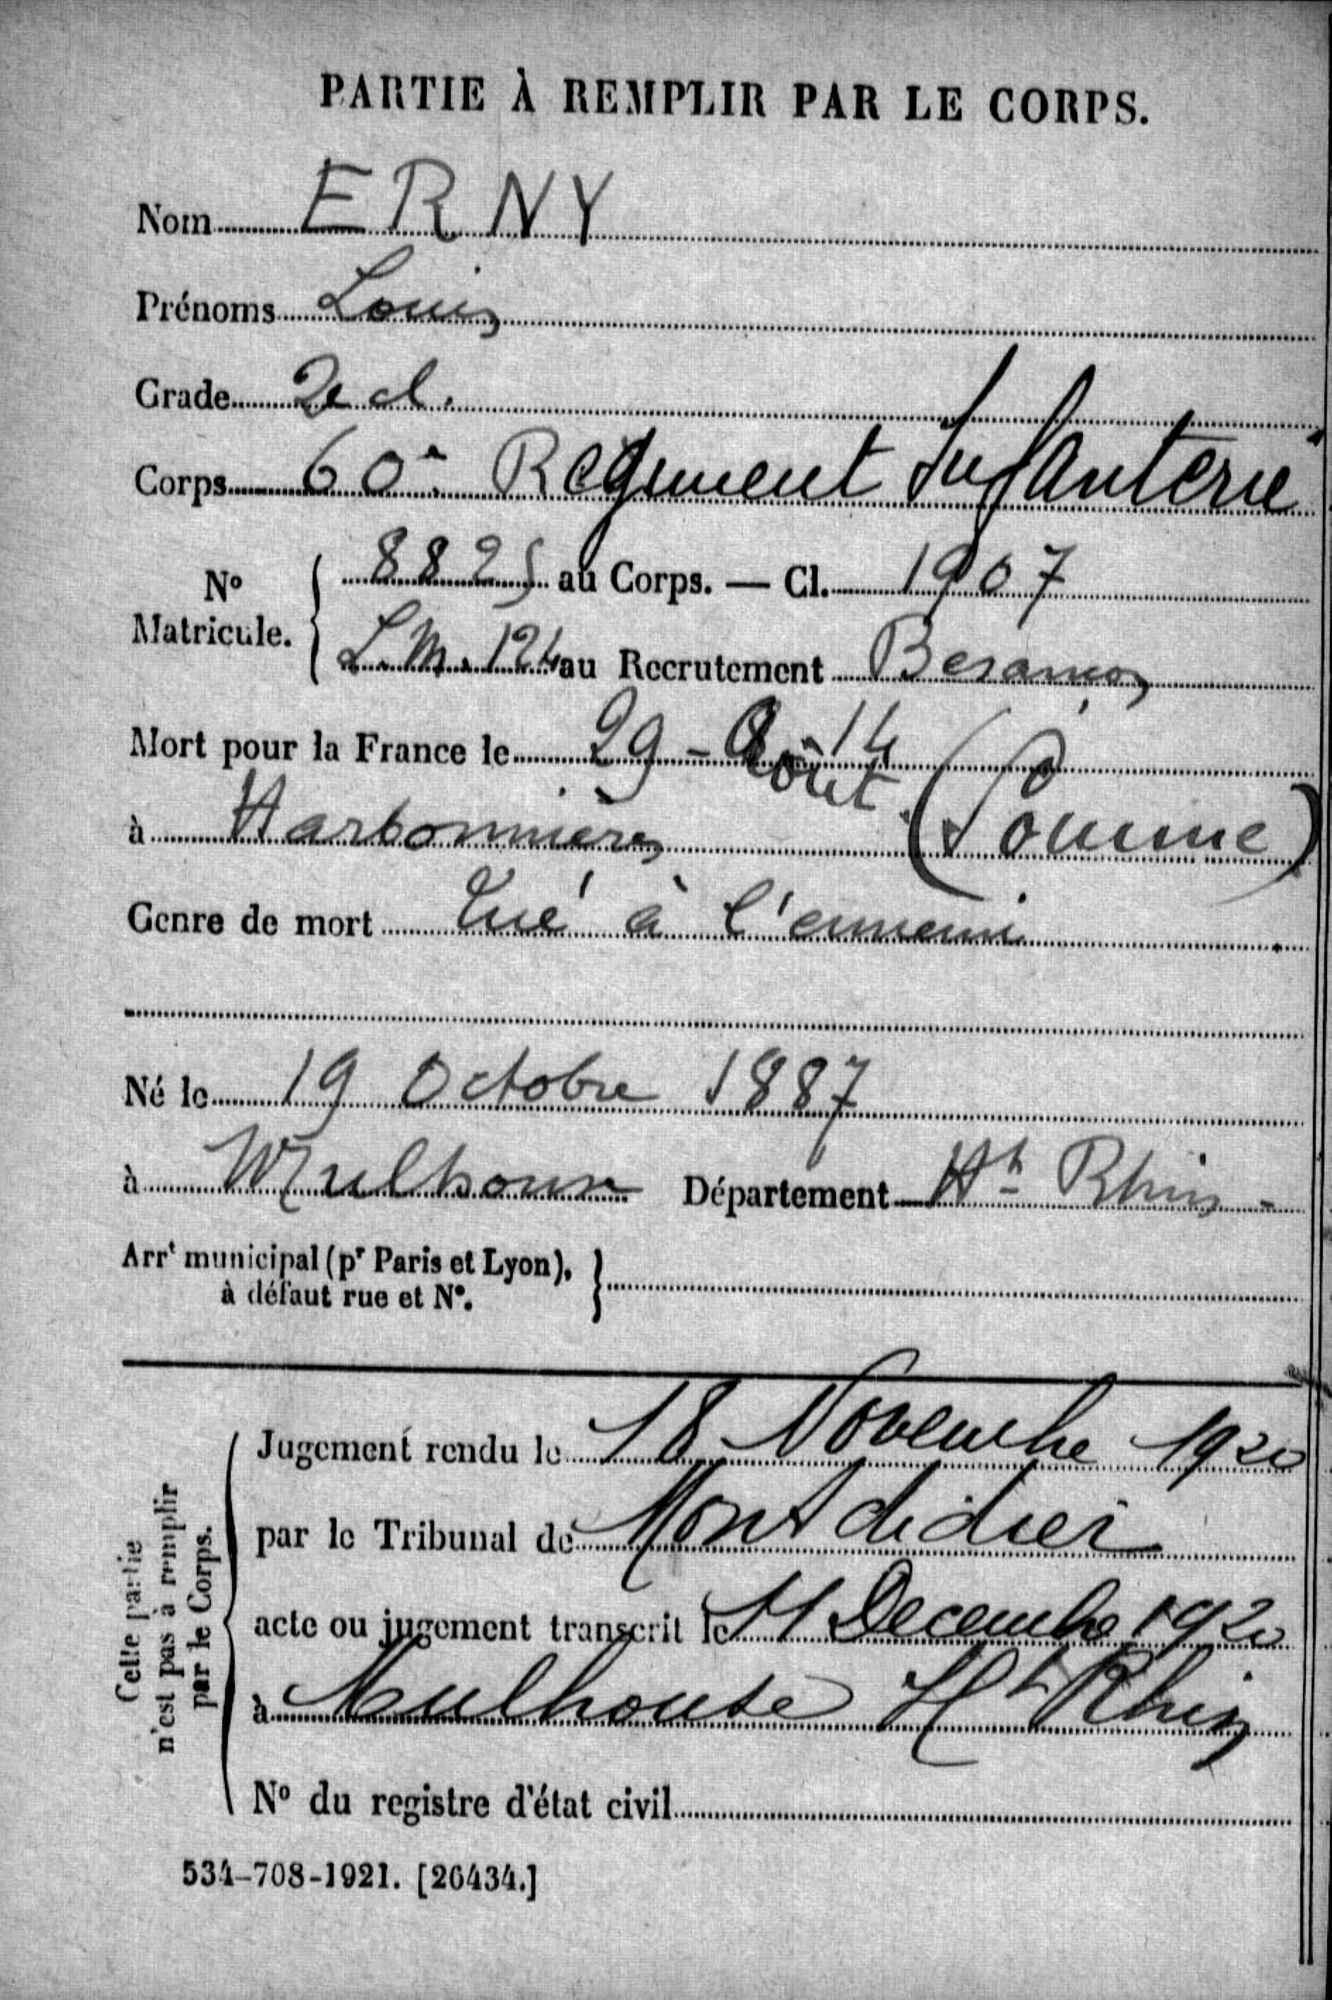 PARTIE À REMPLIR PAR LE CORPS.
Nom ERNY
Prénoms Louis
Grade 2e cl.
Corps 60e Régiment Infanterie
No Matricule. { 8825 au Corps. — Cl. 1907
L.M. 124 au Recrutement Besançon
Mort pour la France le 29 - 8 - 14
Août (Somme)
à Harbonnières
Genre de mort Tué à l'ennemi
Né le 19 Octobre 1887
à Mulhouse Département Ht Rhin -
Arrt municipal (pr Paris et Lyon), }
à défaut rue et N°.
Cette partie n'est pas à remplir par le Corps.
Jugement rendu le 18 Novembre 1920
par le Tribunal de Montdidier
acte ou jugement transcrit le 11 Décembre 1920
à Mulhouse Ht Rhin
No du registre d'état civil
534-708-1921. [26434.]